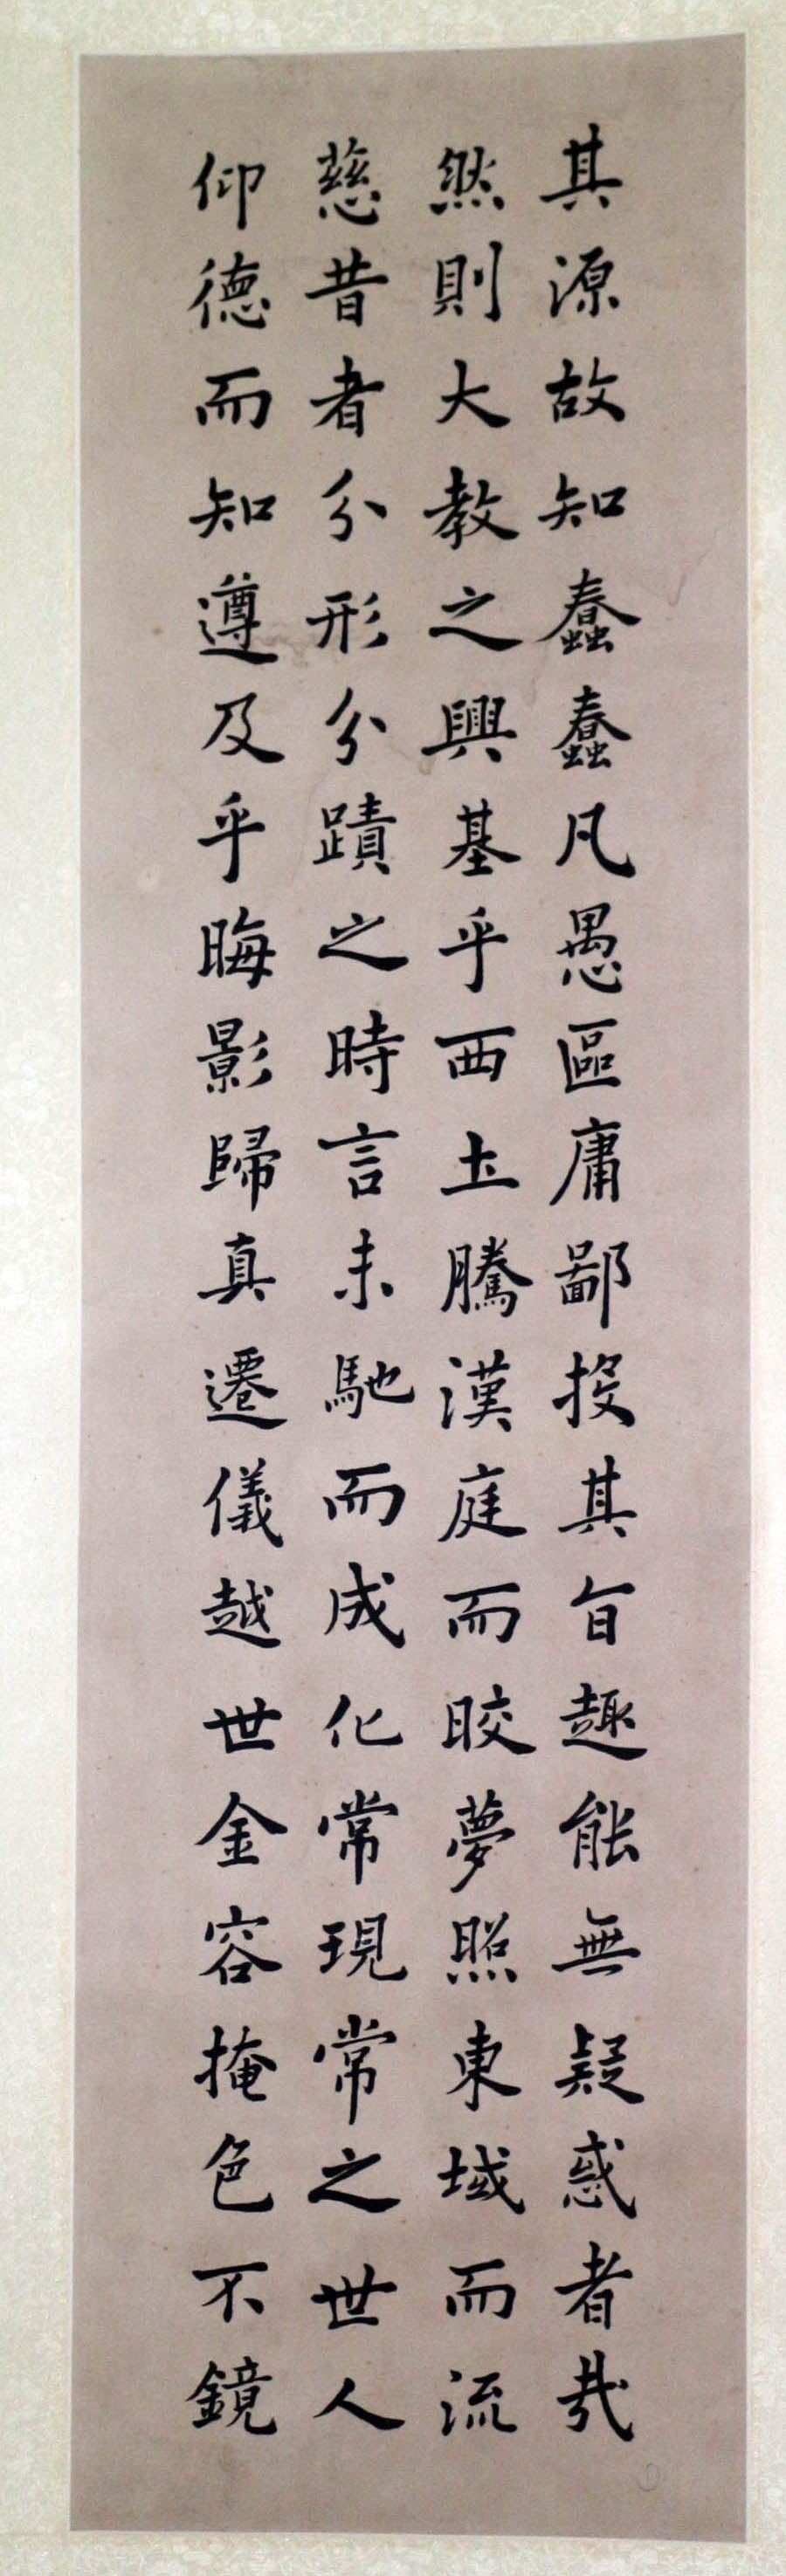 其源故知蠢蠢凡愚區庸鄙投其旨趣能無疑惑者哉
然則大教之興基乎西土騰漢庭而晈夢照東域而流
慈昔者分形分蹟之時言未馳而成化常現常之世人
仰德而知遵及乎晦影歸真遷儀越世金容掩色不鏡